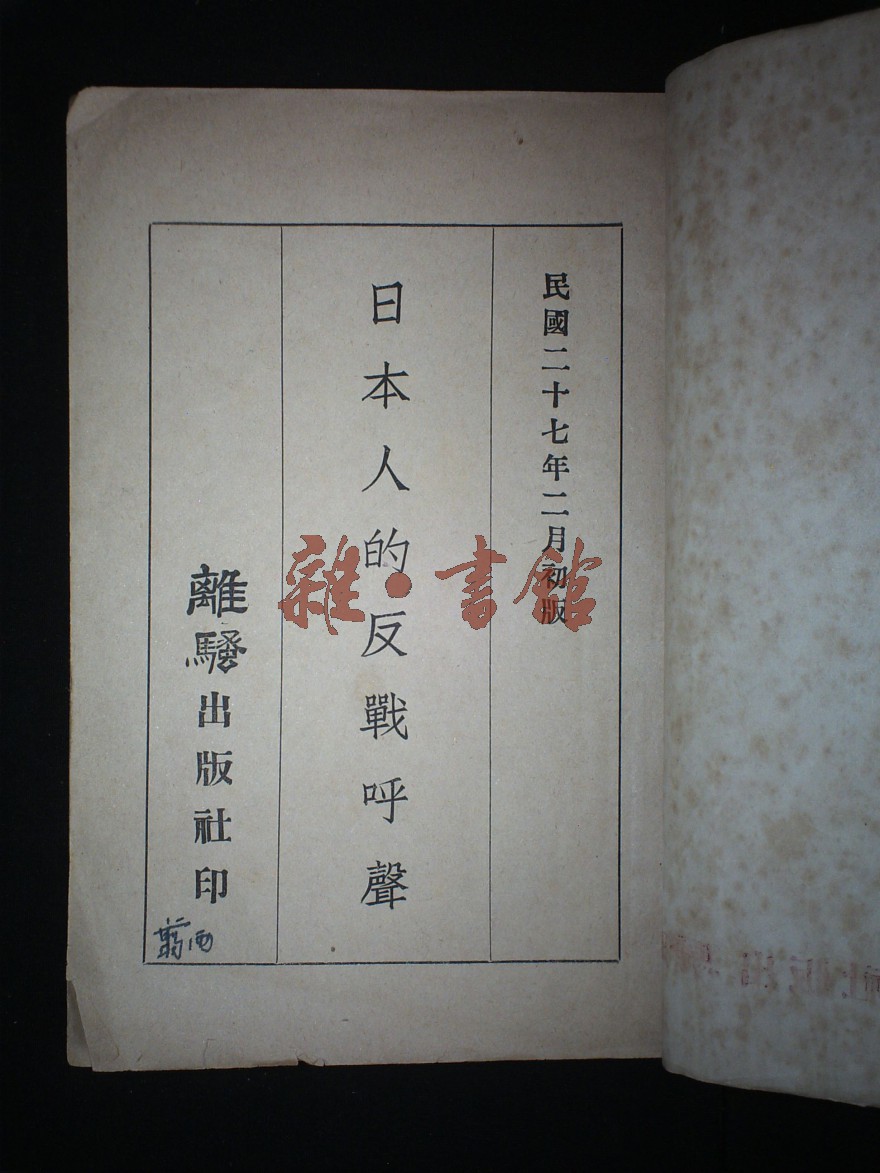 民國二十七年二月初版
日本人的反戰呼聲
離騷出版社印
雜·書館